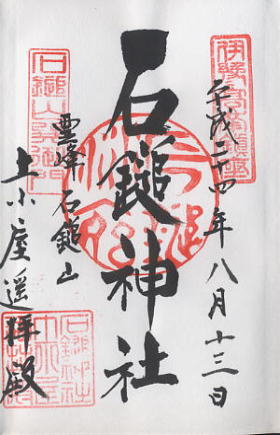 平成二十四年八月十三日
石鎚神社
霊峰 石鎚山
土小屋遥拝殿
石鎚神社
土小屋
遥拝殿